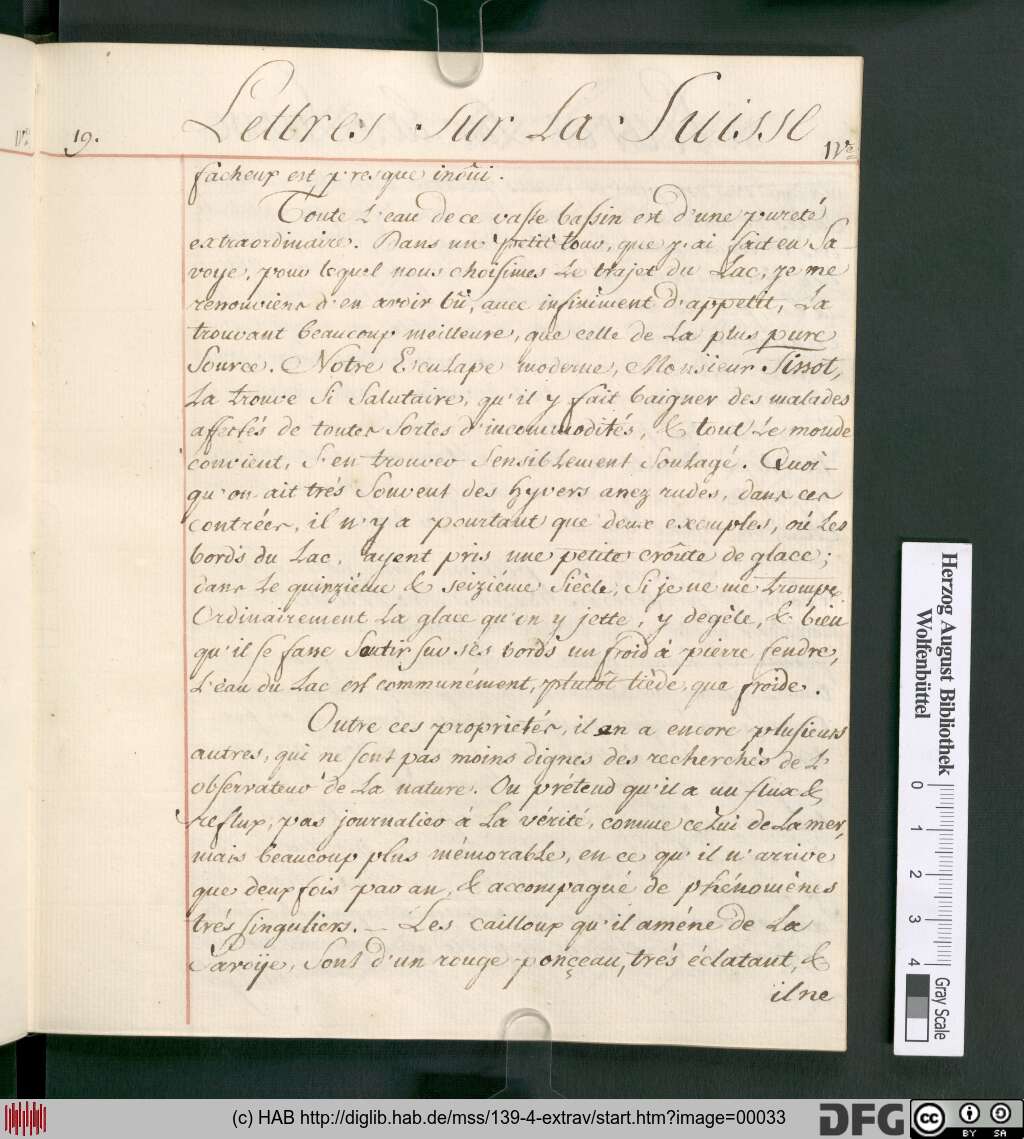 Lettres sur La Suisse
19.
IVe
facheux est presque inoüi.
Toute L'eau de ce vasse bassin est d'une pureté
extraordinaire. Dans un petit tour, que j'ai fait en Sa-
voye, pour lequel nous choisimes Le trajet du Lac, je me
ressouviens d'en avoir bû, avec infiniment d'appetit, La
trouvant beaucoup meilleure, que celle de La plus pure
Source. Notre Esculape moderne, Monsieur Tissot,
La trouve Si Salutaire, qu'il y fait baigner des malades
affectés de toutes Sortes d'incommodités, & tout Le monde
convient, s'en trouver Sensiblement Soulagé. Quoi-
qu'on ait trés Souvent des hyvers assez rudes, dans ces
contrées, il n'y a pourtant que deux exemples, où Les
bords du Lac, ayent pris une petite croûte de glace;
dans Le quinziéme & seiziéme Siécle, Si je ne me trompe
Ordinairement La glace qu'on y jette, y degéle, & bien
qu'il se fasse Sentir sur ses bords un froid à pierre fendre,
L'eau du Lac est communément, plutôt tiède que froide.
Outre ces proprietés, il en a encore plusieurs
autres, qui ne sont pas moins dignes des recherches de L'
observateur de La nature. On prétend qu'il a un flux &
reflux, pas journalier à La vérité, comme celui de La mer,
mais beaucoup plus mémorable, en ce qu'il n'arrive
que deux fois par an, & accompagné de phénomènes
trés singuliers. — Les cailloux qu'il améne de La
Savoÿe, Sont d'un rouge ponçeau, trés éclatant, &
il ne
Herzog August Bibliothek
Wolfenbüttel
0 1 2 3 4
Gray Scale
(c) HAB http://diglib.hab.de/mss/139-4-extrav/start.htm?image=00033
DFG
cc BY SA